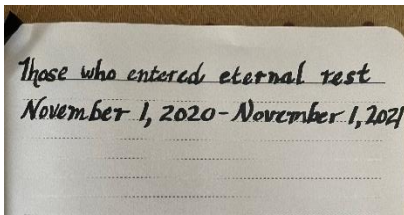 Those who entered eternal rest
November 1, 2020 - November 1, 2021